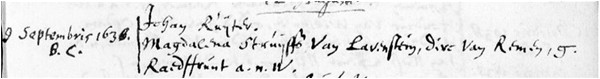 9 Septembris 1636. Johan Ruÿter.
B. C. Magdalena Struÿffs van Lavenstein, dirc van Remen, g.
Raedtfrünt a. n. W.